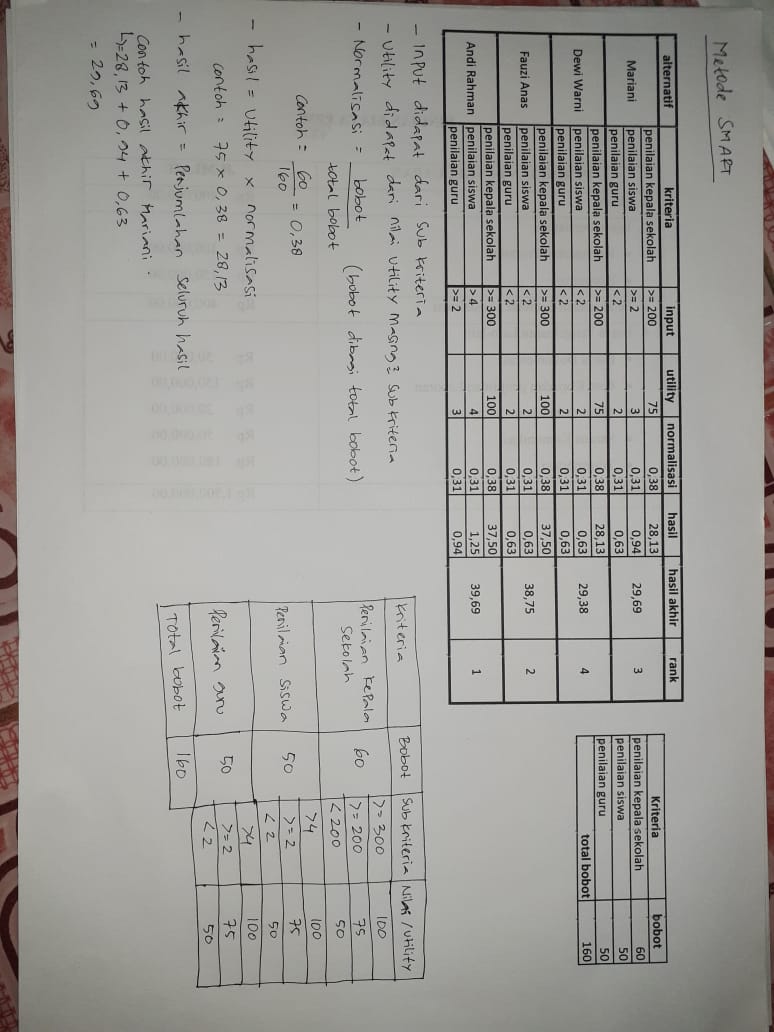 Metode SMART
alternatif kriteria input utility normalisasi hasil hasil akhir rank
Mariani penilaian kepala sekolah >= 200 75 0,38 28,13 29,69 3
penilaian siswa >= 2 3 0,31 0,94
penilaian guru < 2 2 0,31 0,63
Dewi Warni penilaian kepala sekolah >= 200 75 0,38 28,13 29,38 4
penilaian siswa < 2 2 0,31 0,63
penilaian guru < 2 2 0,31 0,63
Fauzi Anas penilaian kepala sekolah >= 300 100 0,38 37,50 38,75 2
penilaian siswa < 2 2 0,31 0,63
penilaian guru < 2 2 0,31 0,63
Andi Rahman penilaian kepala sekolah >= 300 100 0,38 37,50 39,69 1
penilaian siswa > 4 4 0,31 1,25
penilaian guru >= 2 3 0,31 0,94
Kriteria bobot
penilaian kepala sekolah 60
penilaian siswa 50
penilaian guru 50
total bobot 160
- Input didapat dari Sub kriteria
- Utility didapat dari nilai Utility masing2 Sub Kriteria
- Normalisasi = bobot (bobot dibagi total bobot)
total bobot
Contoh = 60 = 0,38
160
- hasil = Utility x normalisasi
Contoh = 75 x 0,38 = 28,13
- hasil akhir = Penjumlahan Seluruh hasil
Contoh hasil akhir Mariani .
↳=28,13 + 0,94 + 0,63
= 29,69
Kriteria Bobot Sub Kriteria Nilai / Utility
Penilaian Kepala 60 >= 300 100
Sekolah >= 200 75
< 200 50
Penilaian Siswa 50 >4 100
>=2 75
<2 50
Penilaian guru 50 >4 100
>=2 75
<2 50
Total bobot 160